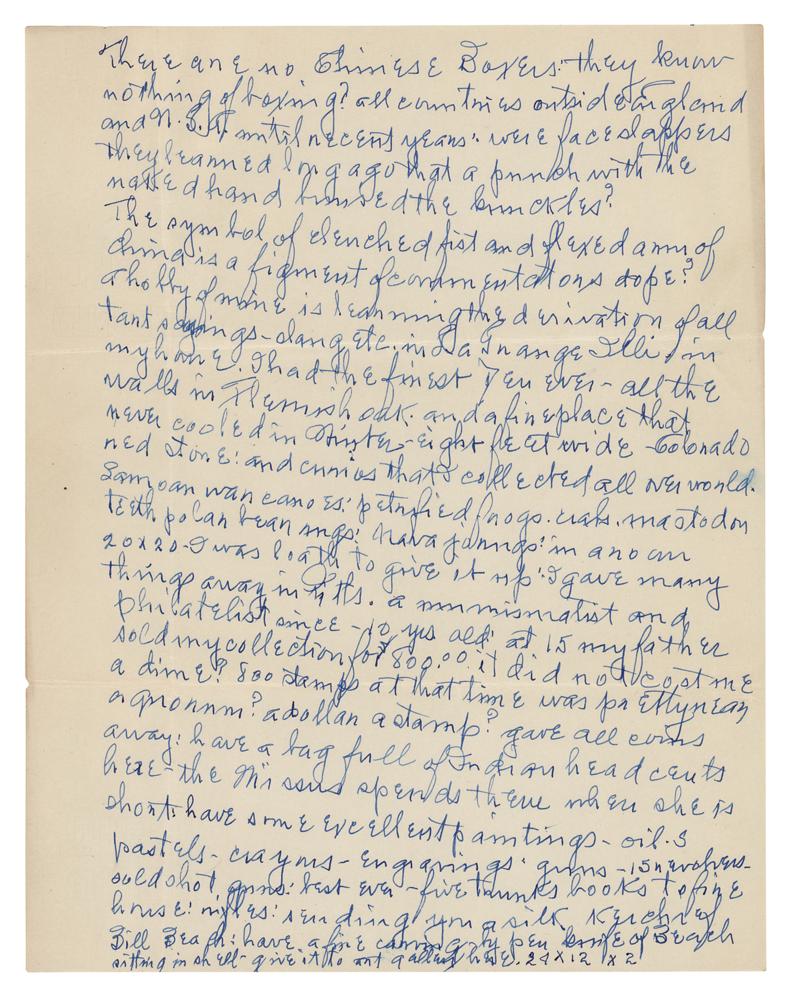 There are no Chinese Boxers: they know
nothing of boxing? all countries outside England
and U.S.A. until recent years: were face slappers
they learned long ago that a punch with the
naked hand bruised the knuckles?
The symbol of clenched fist and flexed arm of
China is a figment of commentators dope?
a hobby of mine is learning the derivation of all
tant sayings - slang etc. in La Grange Illi, in
my home. I had the finest Den ever - all the
walls in Flemish oak. and a fireplace that
never cooled in Winter - eight feet wide - Colorado
red stone: and curios that I collected all over world.
Samoan war canoes: petrified frogs. crabs. mastodon
teeth polar bear rugs: Navajo rugs: in a room
20 x 20 - I was loath to give it up: I gave many
things away in gifts. a numismatist and
philatelist since - 10 yrs old: at 15 my father
sold my collection for 800.00 it did not cost me
a dime? 800 stamps at that time was pretty near
a quorum? a dollar a stamp? gave all coins
away: have a bag full of Indian head cents
here - the Missus spends them when she is
short: have some excellent paintings - oil.s
pastels - crayons - engravings: guns - 15 revolvers -
sold shot guns: best ever - five trunks books to fine
house: rifles: sending you a silk kerchief
Bill Beach: have a fine pen of Beach
sitting in shell - give it to art gallery here. 24 x 12 x 2